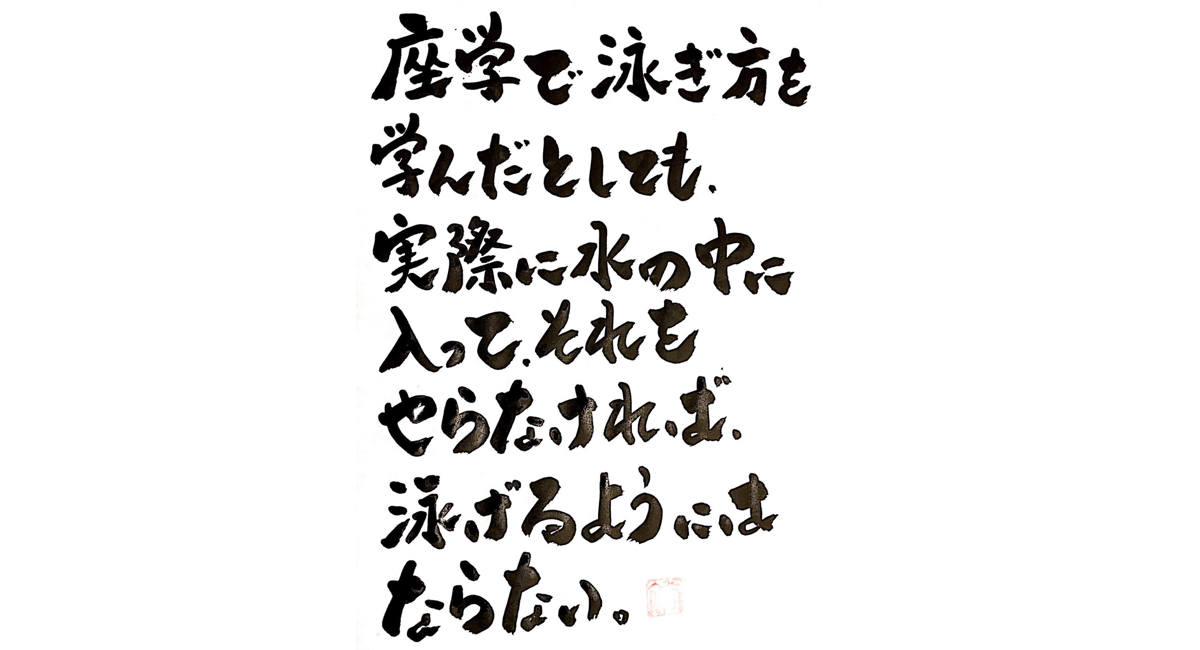 座学で泳ぎ方を
学んだとしても、
実際に水の中に
入って、それを
やらなければ、
泳げるようには
ならない。